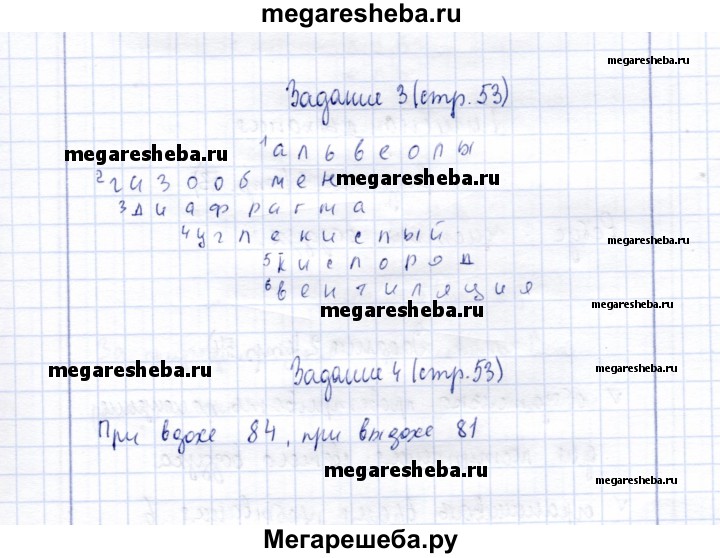 megaresheba.ru
megaresheba.ru
Задание 3 (стр. 53)
1 а л ь в е о л ы
megaresheba.ru
2 г а з о о б м е н
megaresheba.ru
3 д и а ф р а г м а
4 у г л е к и с л ы й
megaresheba.ru
5 к и с л о р о д
6 в е н т и л я ц и я
megaresheba.ru
megaresheba.ru
Задание 4 (стр. 53)
megaresheba.ru
При вдохе 84, при выдохе 81
megaresheba.ru
megaresheba.ru
Мегарешеба.ру